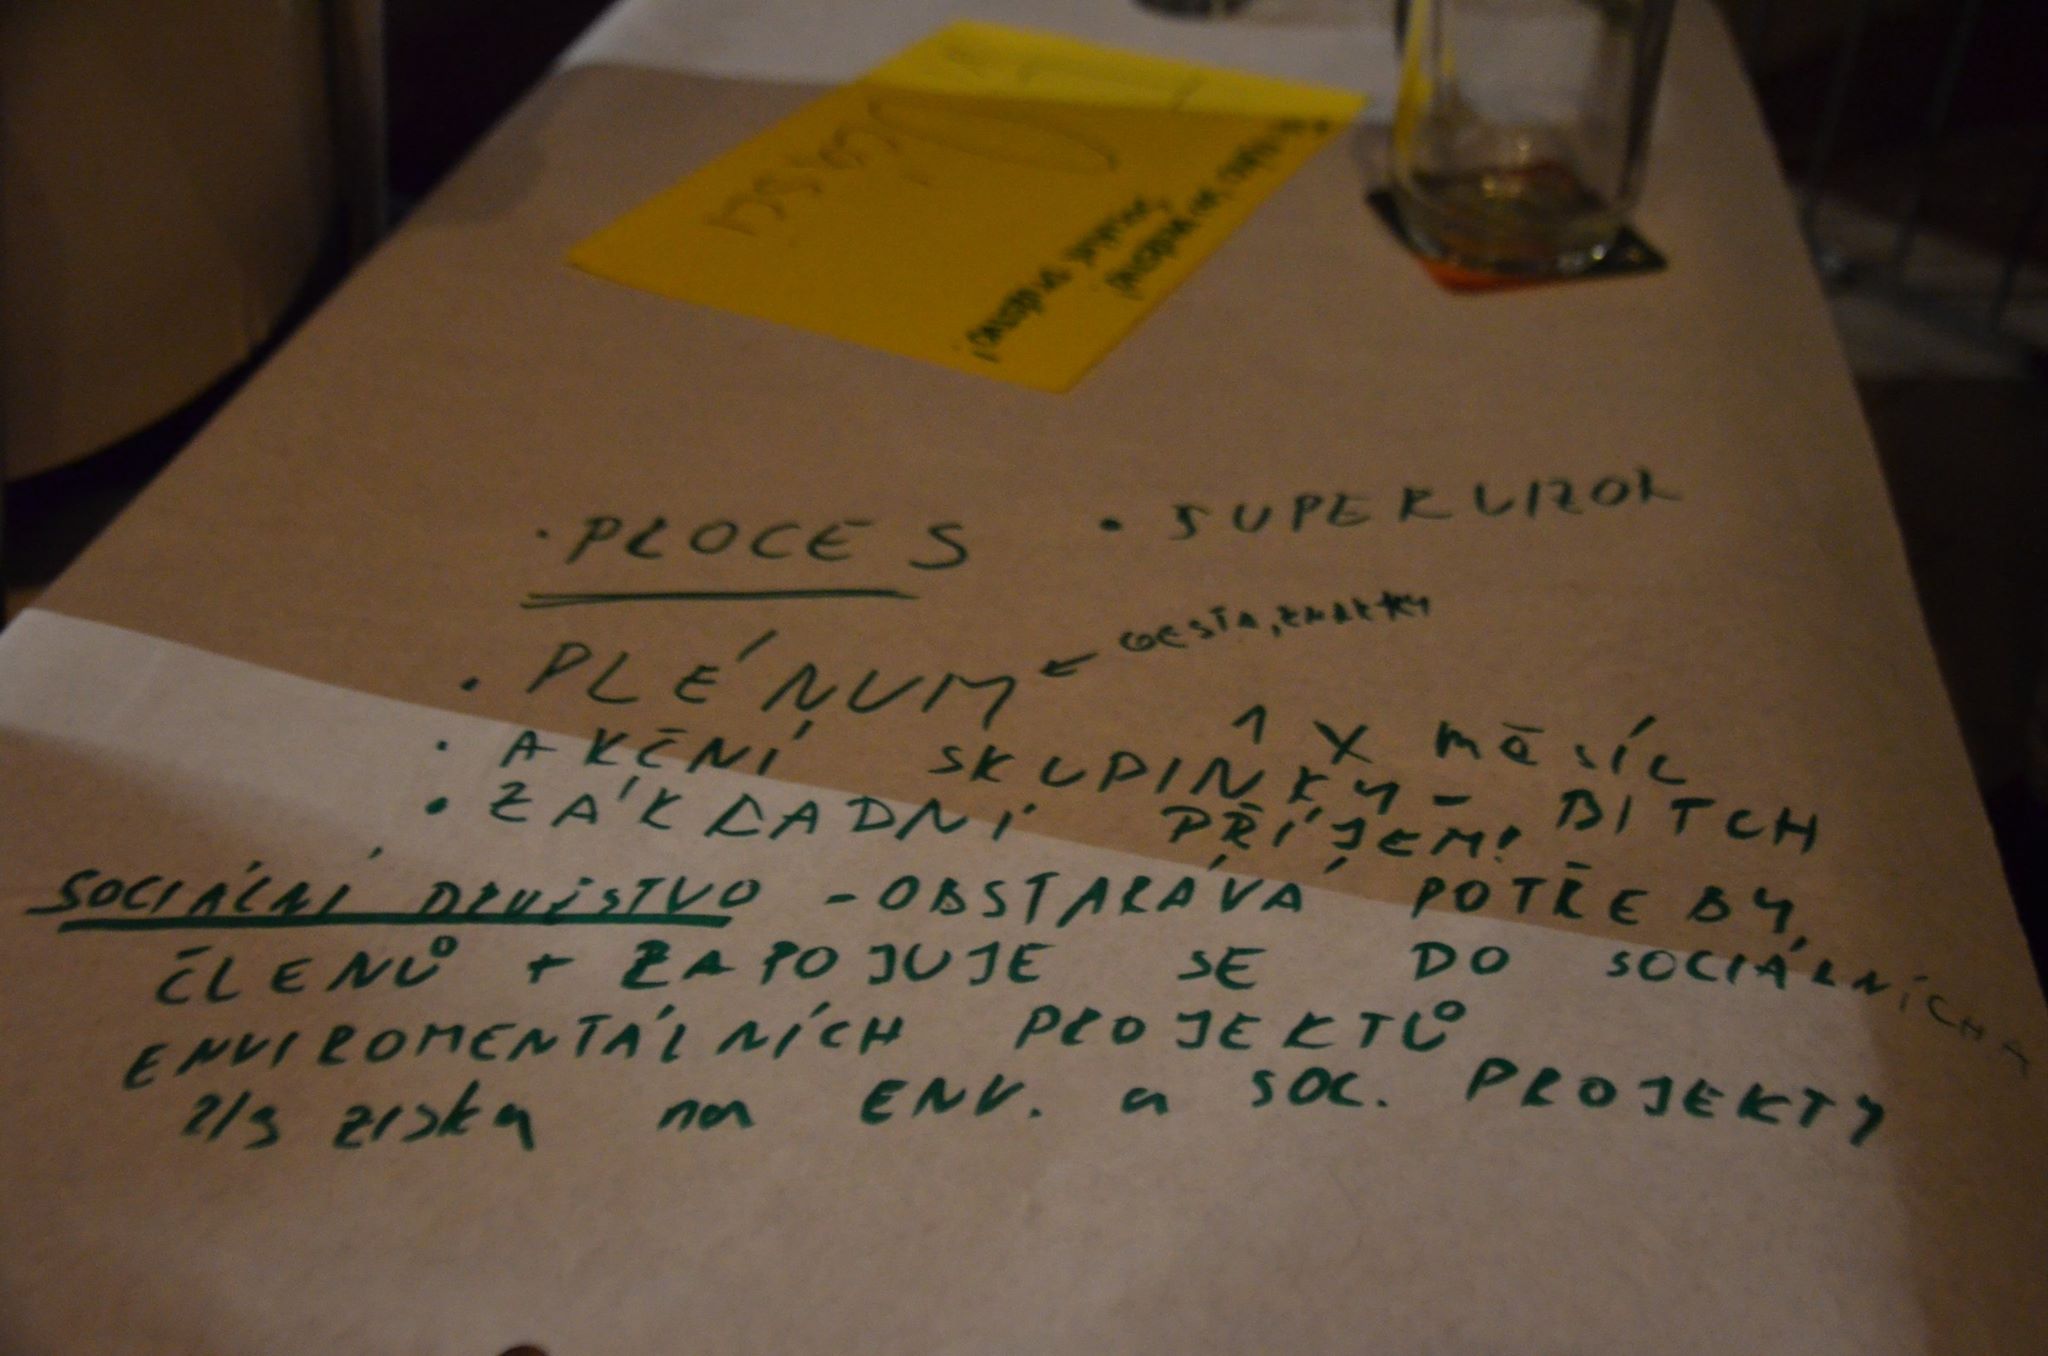 • PROCES • SUPERVIZOR
• PLÉNUM ← GESTA, ZNAKY
1 X MĚSÍC
• AKČNÍ SKUPINKY - BITCH
• ZÁKLADNÍ PŘÍJEM!
SOCIÁLNÍ DRUŽSTVO - OBSTARÁVÁ POTŘEBY,
ČLENŮ + ZAPOJUJE SE DO SOCIÁLNÍCH A
ENVIROMENTÁLNÍCH PROJEKTŮ
2/3 ZISKY na ENV. a SOC. PROJEKTY